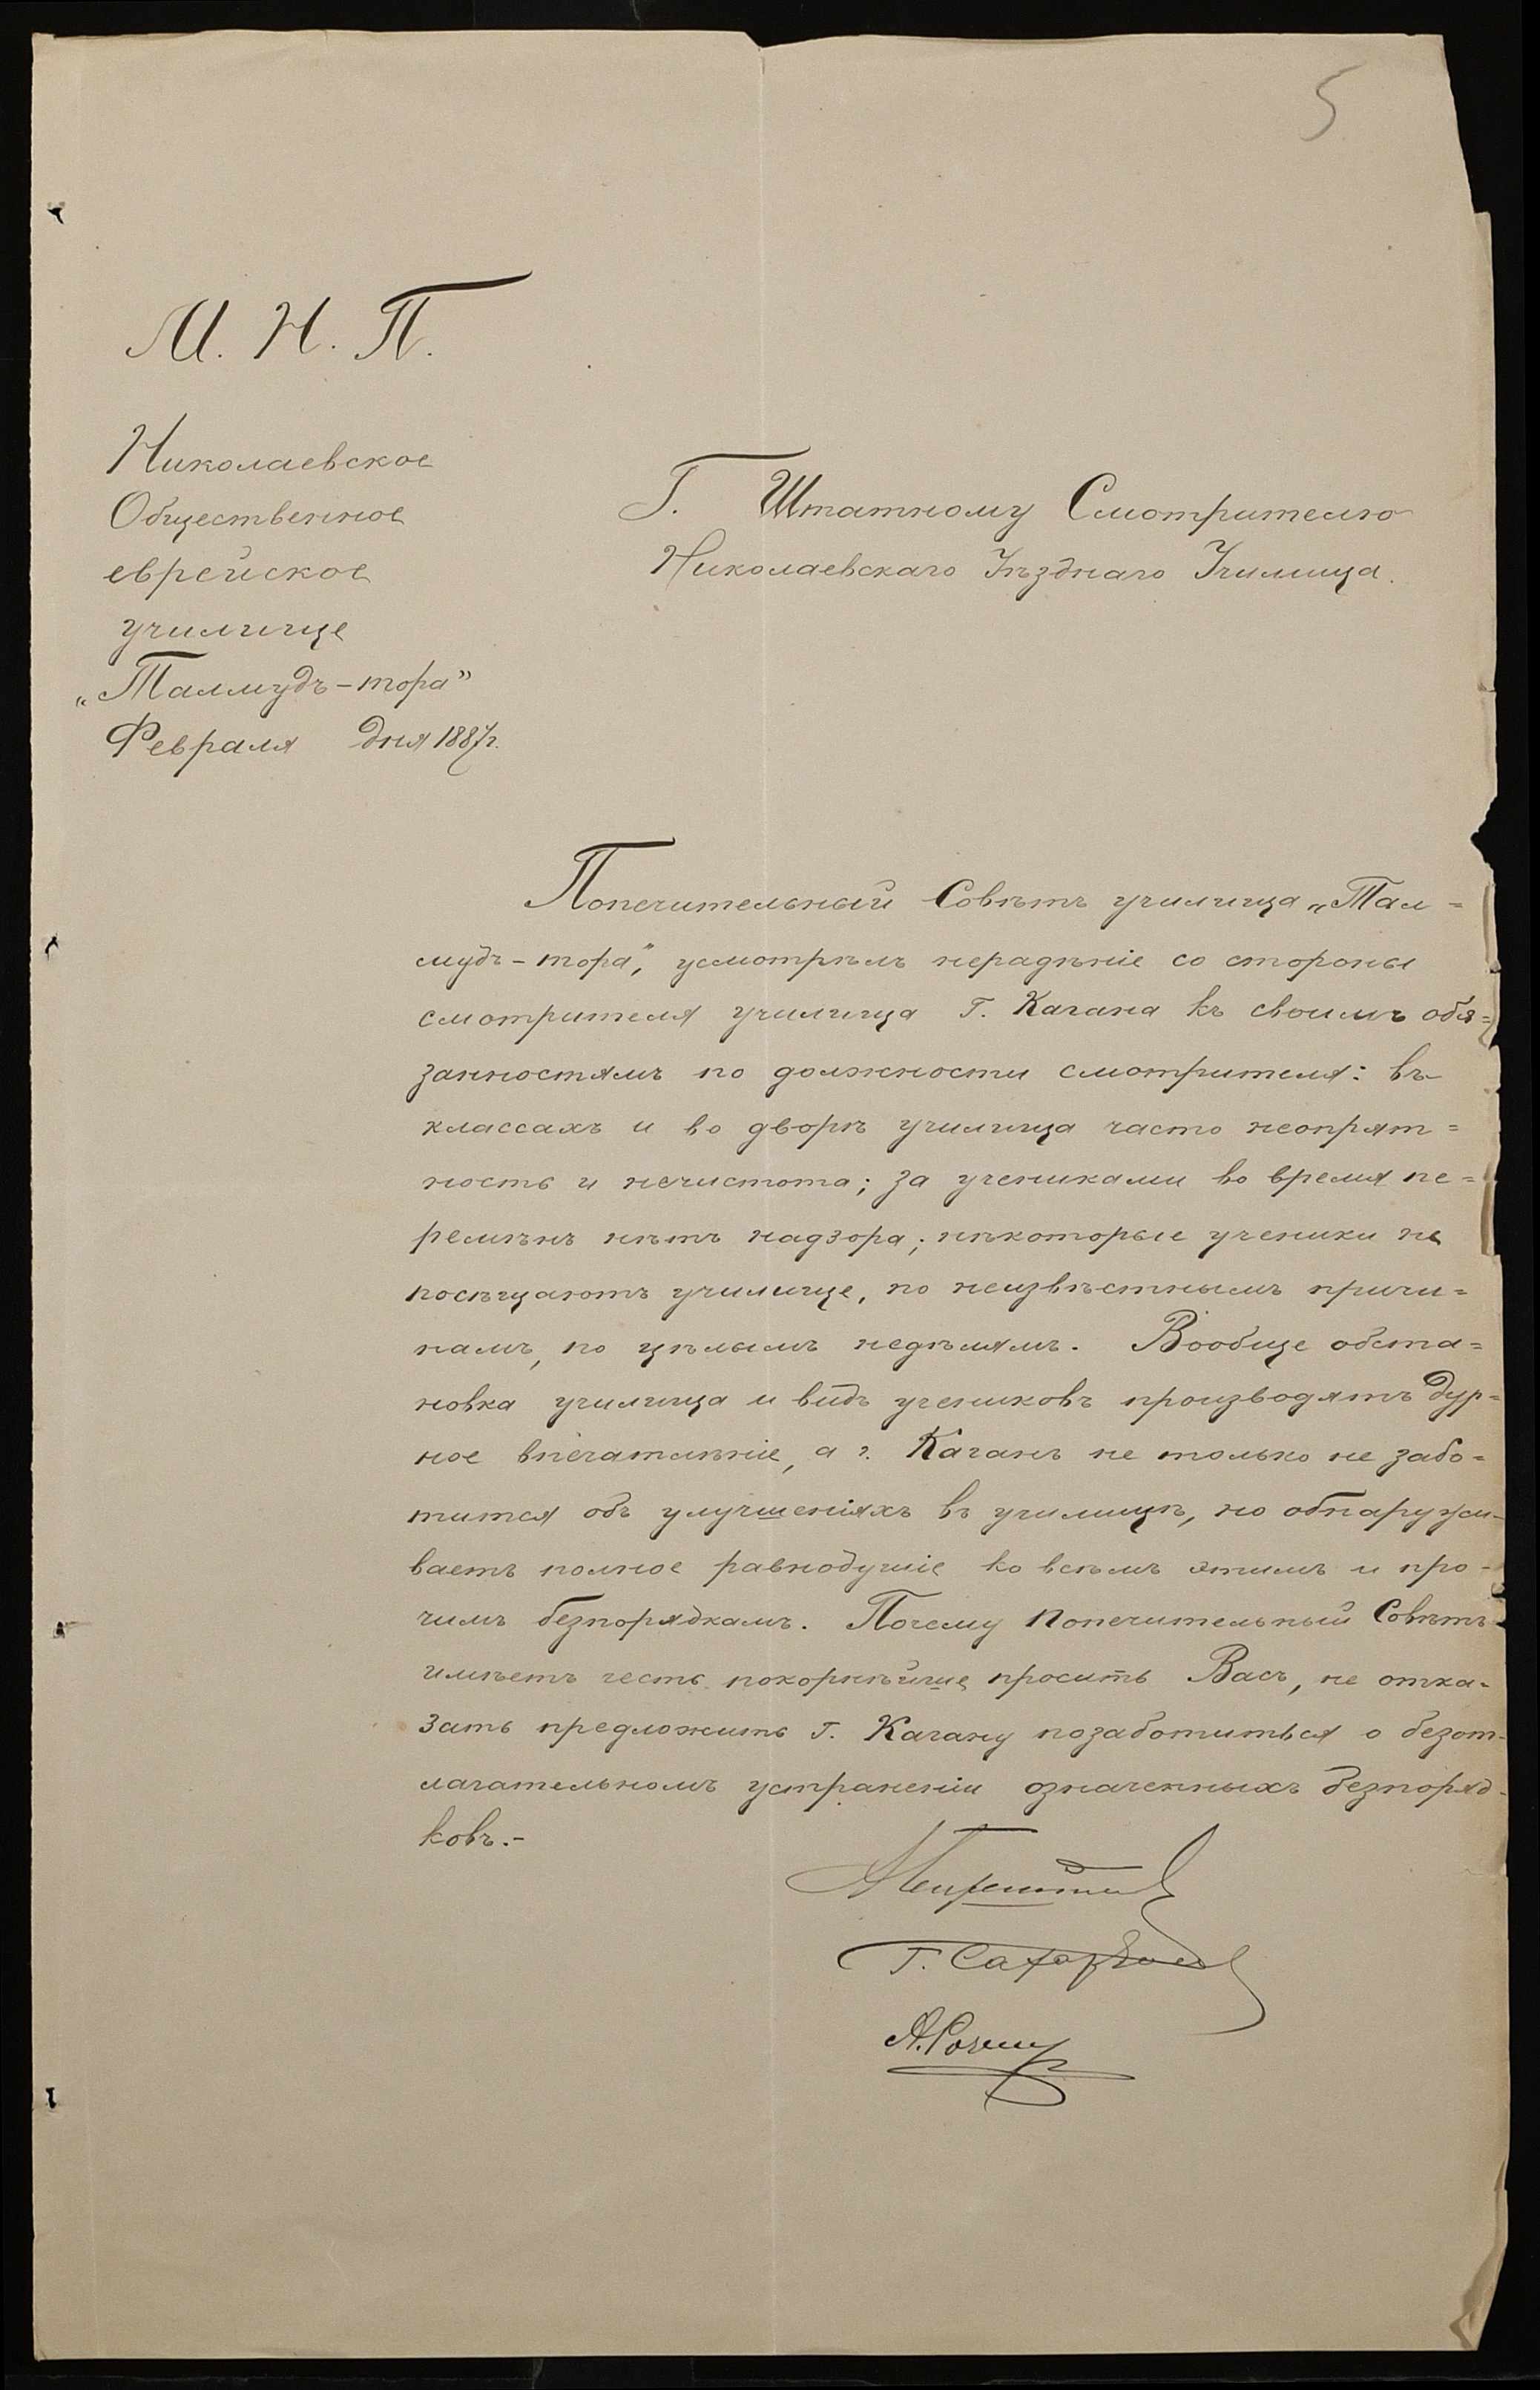 5
М. Н. П.
Николаевское
Общественное
еврейское
училище
„Таллмудъ-тора”
Февраля дня 1887г.
Г. Штатному Смотрителю
Николаевскаго Уѣзднаго Училища.
Попечительный Совѣтъ училища „Тал=
мудъ-тора”, усмотрѣлъ нерадѣніе со стороны
смотрителя училища Г. Кагана къ своимъ обя=
занностямъ по должности смотрителя: въ
классахъ и во дворѣ училища часто неопрят=
ность и нечистота; за учениками во время пе=
ремѣнъ нѣтъ надзора; нѣкоторые ученики не
посѣщаютъ училище, по неизвѣстнымъ причи=
намъ, по цѣлымъ недѣлямъ. Вообще обста=
новка училища и видъ учениковъ производятъ дур=
ное впечатлѣніе, а г. Каганъ не только не забо=
тится объ улучшеніяхъ въ училищѣ, но обнаружи-
ваетъ полное равнодушіе ко всѣмъ этимъ и про-
чимъ безпорядкамъ. Почему Попечительный Совѣтъ
имѣетъ честь покорнѣйше просить Васъ, не отка-
зать предложить Г. Кагану позаботиться о безот-
лагательномъ устраненіи означенныхъ безпоряд-
ковъ.-
Г.
А.